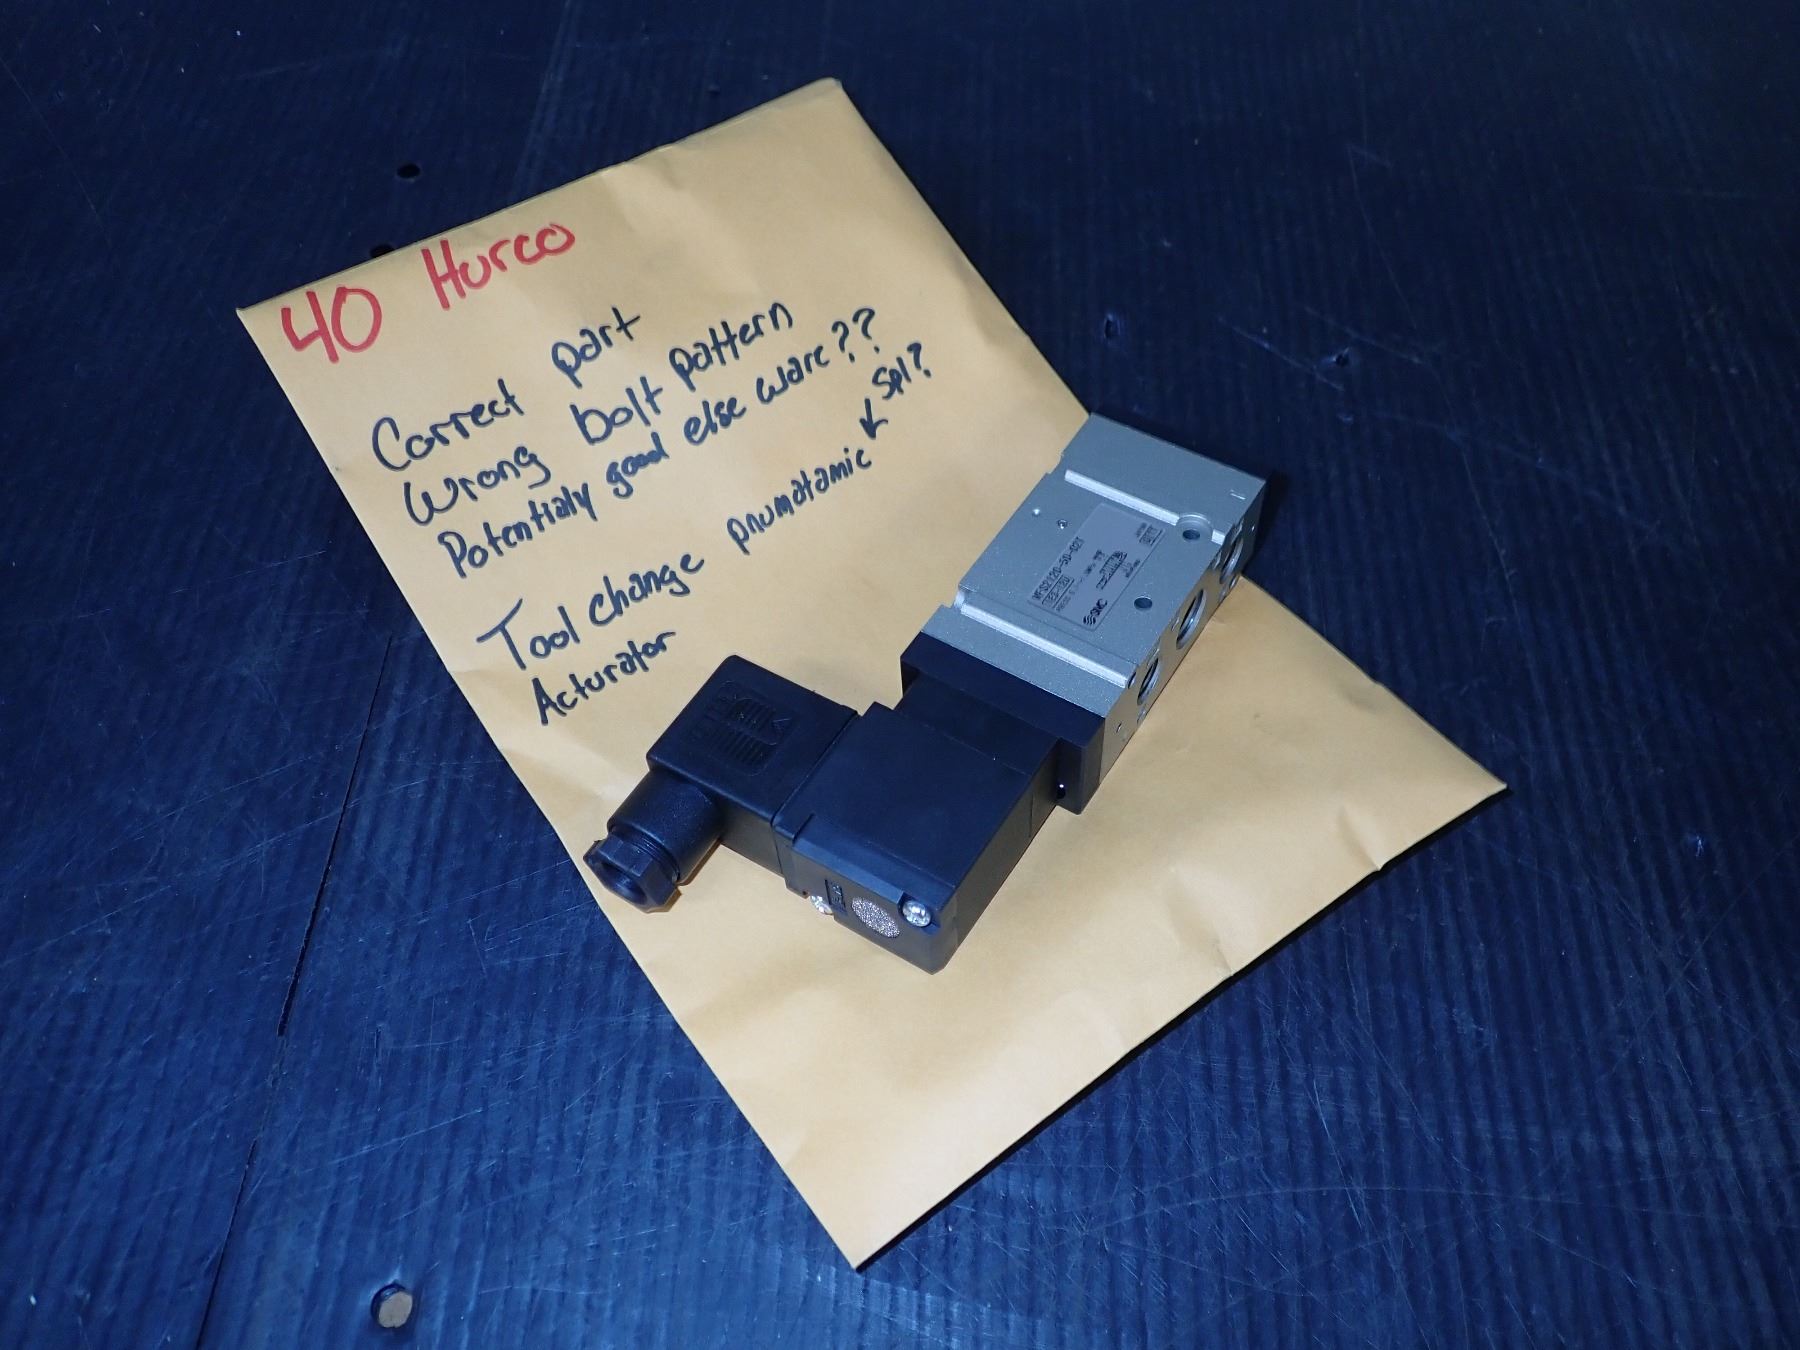 40 Hurco
Correct part
Wrong bolt pattern
Potentialy good else ware??
Spl?
Tool change pnumatamic
Acturator
VFS2120-5D-02T
SMC